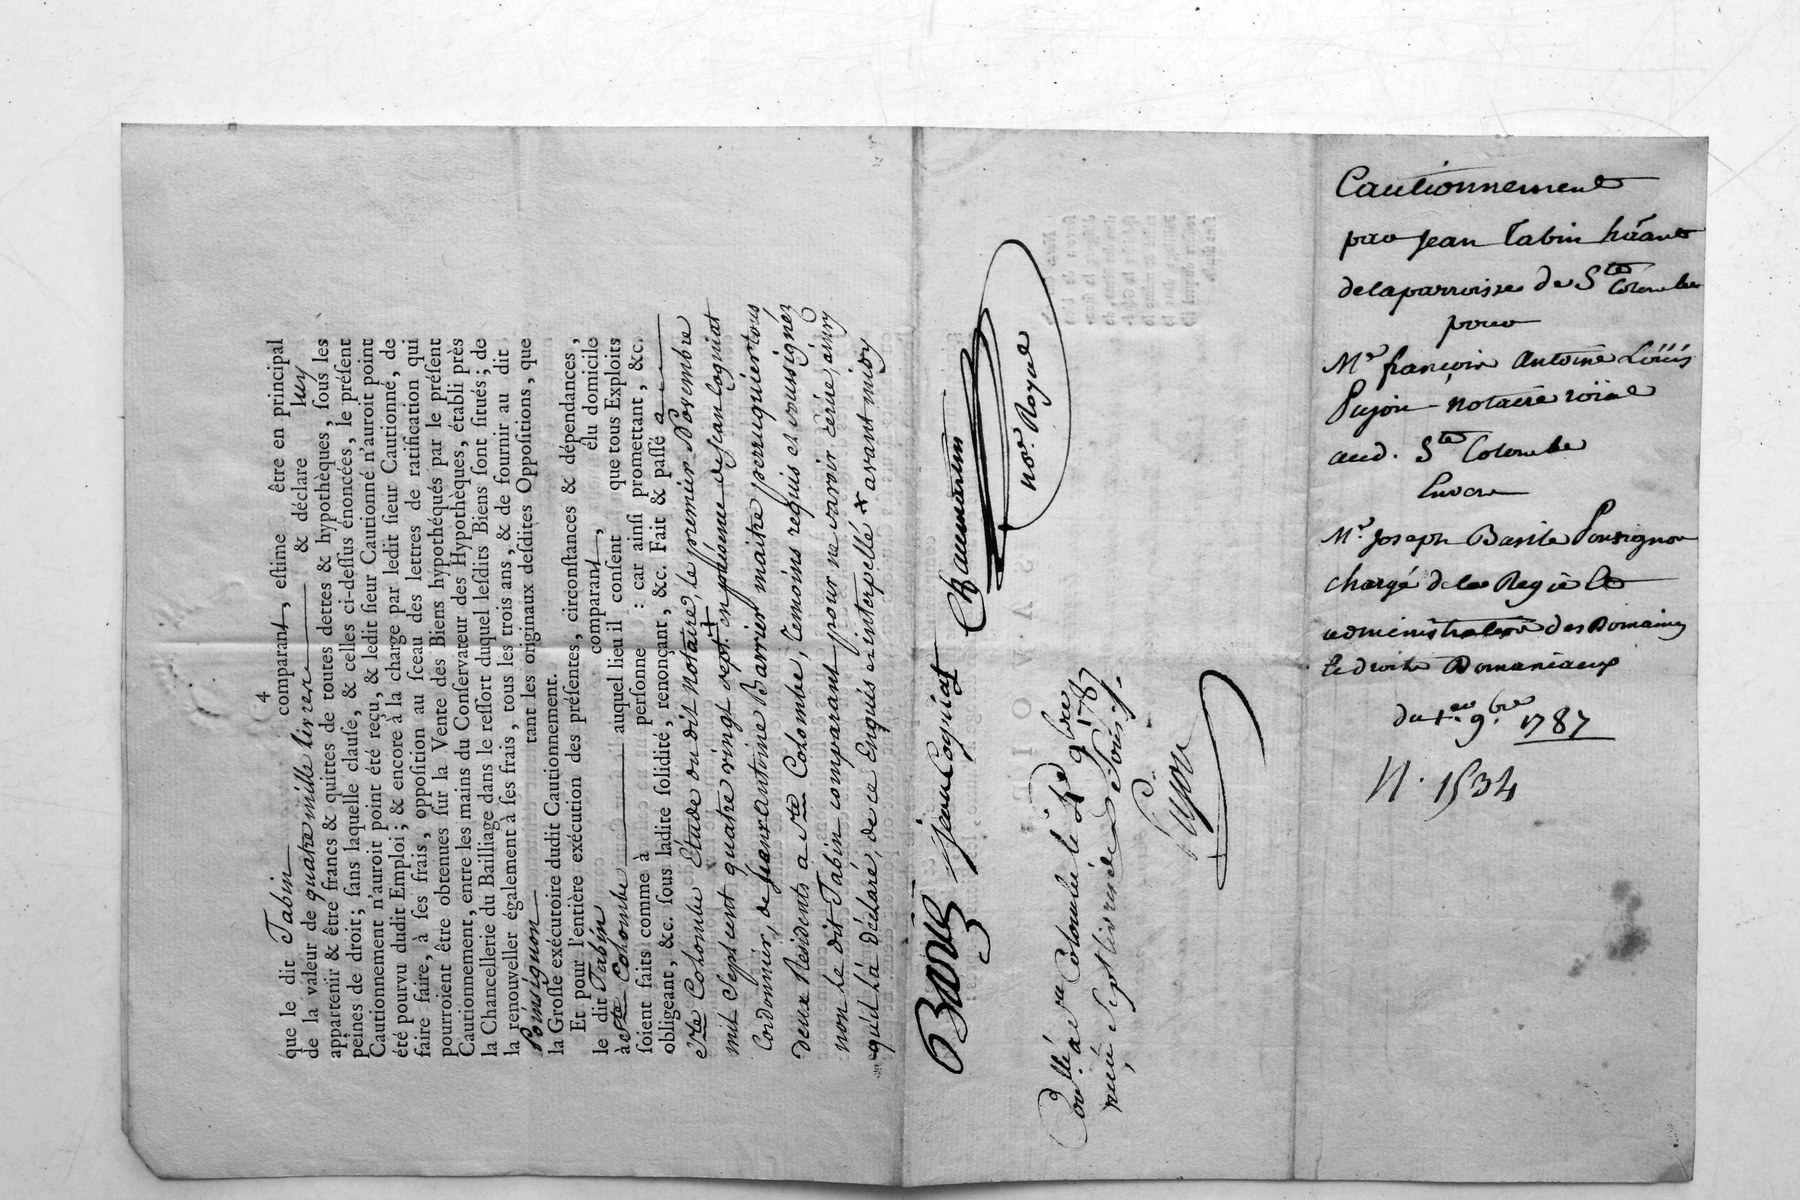 4
que le dit Tabin comparant, eſtime être en principal
de la valeur de quatre mille livres & déclare luy
appartenir & être francs & quittes de toutes dettes & hypothèques, ſous les
peines de droit; ſans laquelle clauſe, & celles ci-deſſus énoncées, le préſent
Cautionnement n'auroit point été reçu, & ledit ſieur Cautionné n'auroit point
été pourvu dudit Emploi; & encore à la charge par ledit ſieur Cautionné, de
faire faire, à ſes frais, oppoſition au ſceau des lettres de ratification qui
pourroient être obtenues ſur la Vente des Biens hypothéqués par le préſent
Cautionnement, entre les mains du Conſervateur des Hypothèques, établi près
la Chancellerie du Bailliage dans le reſſort duquel leſdits Biens ſont ſitués; de
la renouveller également à ſes frais, tous les trois ans, & de fournir au dit
Poinsignon tant les originaux deſdites Oppoſitions, que
la Groſſe exécutoire dudit Cautionnement.
Et pour l'entière exécution des préſentes, circonſtances & dépendances,
le dit Tabin comparant, élu domicile
à Ste Colombe auquel lieu il conſent que tous Exploits
ſoient faits comme à perſonne : car ainſi promettant, &c.
obligeant, &c. ſous ladite ſolidité, renonçant, &c. Fait & paſſé a
Ste Colombe Étude du dit Notaire, le premier Novembre
mil Sept cent quatre vingt sept. en présence de jean Cogniat
Cordonnier, de antoine Barrier maitre perruquier tous
deux Residents a Ste Colombe, temoins requis et soussignéz
non le dit Tabin comparant pour ne savoir
qu'il a déclaré, de ce Enquis et interpellé avant midy
jean Cogniat
no. Royal
Con.llé a Ste Colombe le 9bre 1787
reçu Sept livres dix Sols
Pujon
Cautionnement
par jean Tabin
de la parroisse de Ste Colombe
pour
Mr françois Antoine Loüis
Pujon Notaire roial
aud. Ste Colombe
Envers
Mr. Joseph Basile Poinsignon
chargé de la Regie Et
administration des Domaines
Et droits Domaniaux
du 1er 9bre 1787
N. 1534